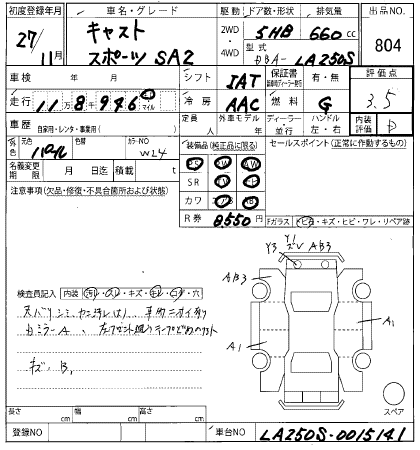 初度登録年月 車名・グレード 駆動 ドア数・形状 排気量 出品NO.
27/11月 キャスト 2WD 5HB 660cc 804
スポーツ SA2 4WD 型式 DBA-LA250S
車検 年 月 シフト IAT 保証書 有・無 評価点
走行 11万8946 キロ マイル 冷房 AAC 燃料 G 3.5
車歴 自家用・レンタ・事業用( ) 定員 人 外車モデル 年 ディーラー 並行 ハンドル 左・右 内装評価 D
外色 元色 パール 色替 カラーNO W24 装備品(純正品に限る) セールスポイント(正常に作動するもの)
名義変更期限 月 日迄 積載 t PS
SR
注意事項(欠品・修復・不具合箇所及び状態) カワ
R券 8550円 Fガラス トビ石・キズ・ヒビ・ワレ・リペア跡
Y3 Y1 AB3
AB3
検査員記入 内装 汚れ・スレ・キズ・キレ・コゲ・穴
天バリシミ
ミラーA
A1 A1
キズ、B1
長さ cm 幅 cm 高さ cm スペア
登録NO 車台NO LA250S-0015141